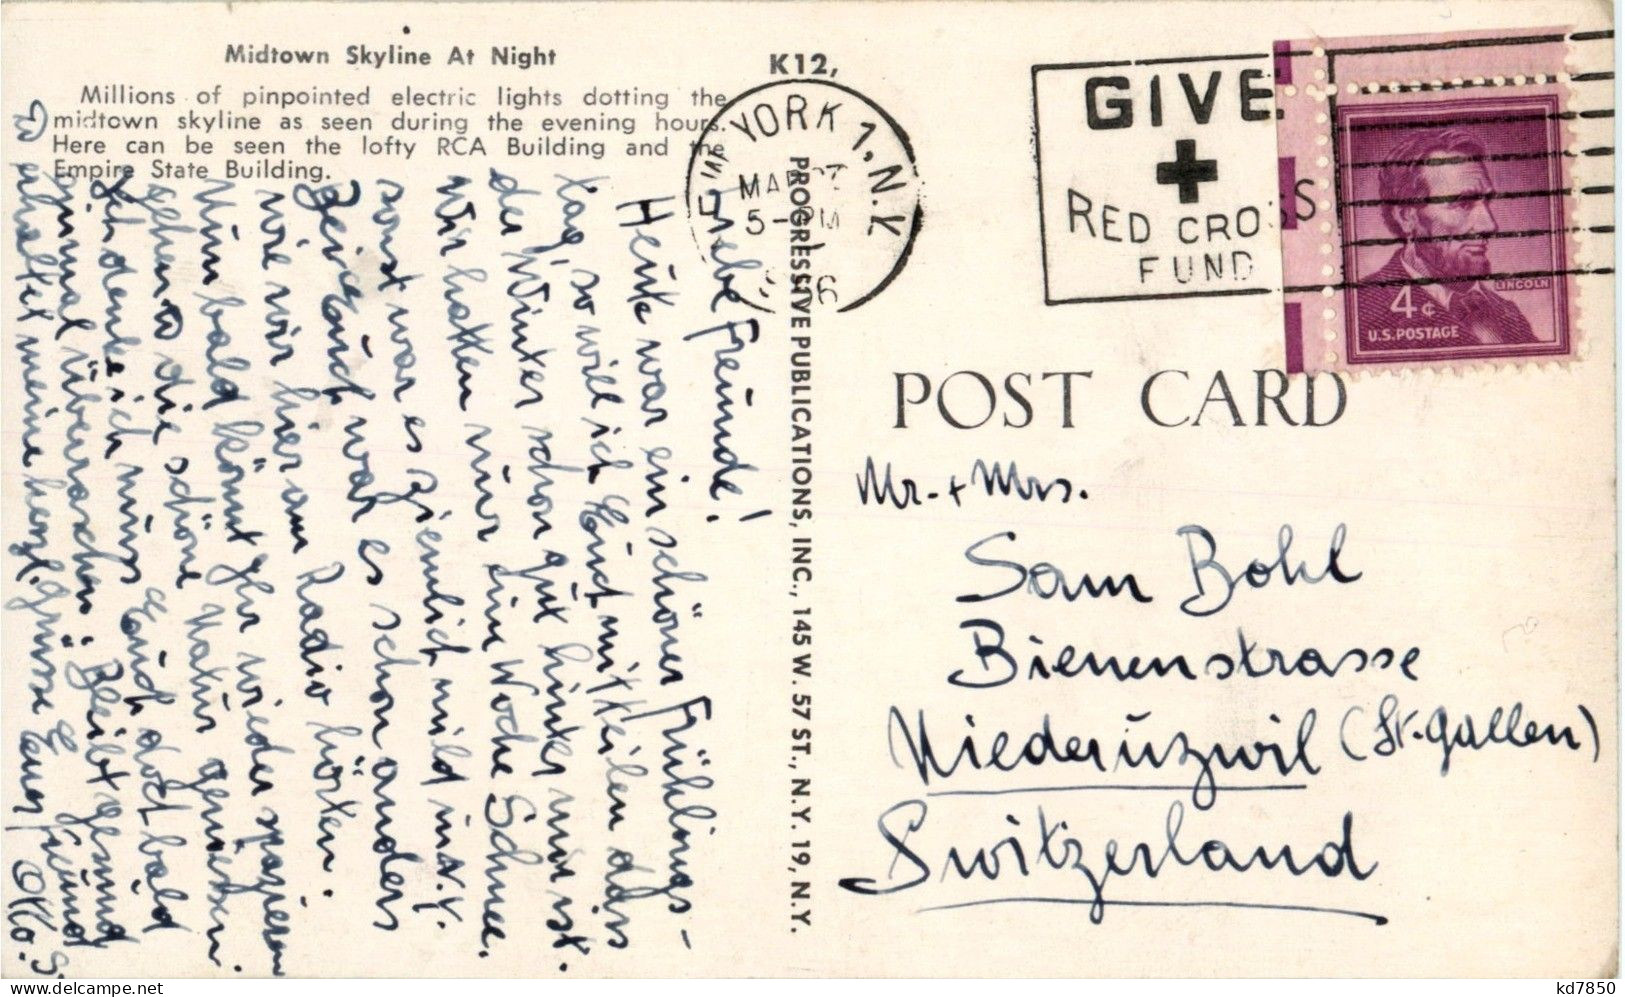 Midtown Skyline At Night
Millions of pinpointed electric lights dotting the
midtown skyline as seen during the evening hours.
Here can be seen the lofty RCA Building and the
Empire State Building.
K12,
YORK 1, N.Y.
5-PM
GIVE
RED CROSS
FUND
LINCOLN
4¢
U.S. POSTAGE
POST CARD
PROGRESSIVE PUBLICATIONS, INC., 145 W. 57 ST., N.Y. 19, N.Y.
Mr. + Mrs.
Sam Bohl
Bienenstrasse
Niederuzwil (St. Gallen)
Switzerland
Liebe Freunde!
Heute war ein schöner Frühlings-
tag, so will ich Euch mitteilen dass
der Winter schon gut hinter uns ist.
Wir hatten nur eine Woche Schnee.
sonst war es ziemlich mild in N.Y.
Bei Euch war es schon anders
wie wir hier am Radio hörten.
Nun bald könnt Ihr wieder spazieren
gehen die schöne Natur geniessen.
Ich denke ich muss Euch doch bald
einmal überraschen. Bleibt gesund
erhaltet meine herzl. Grüsse Euer Freund
Otto. S.
kd7850